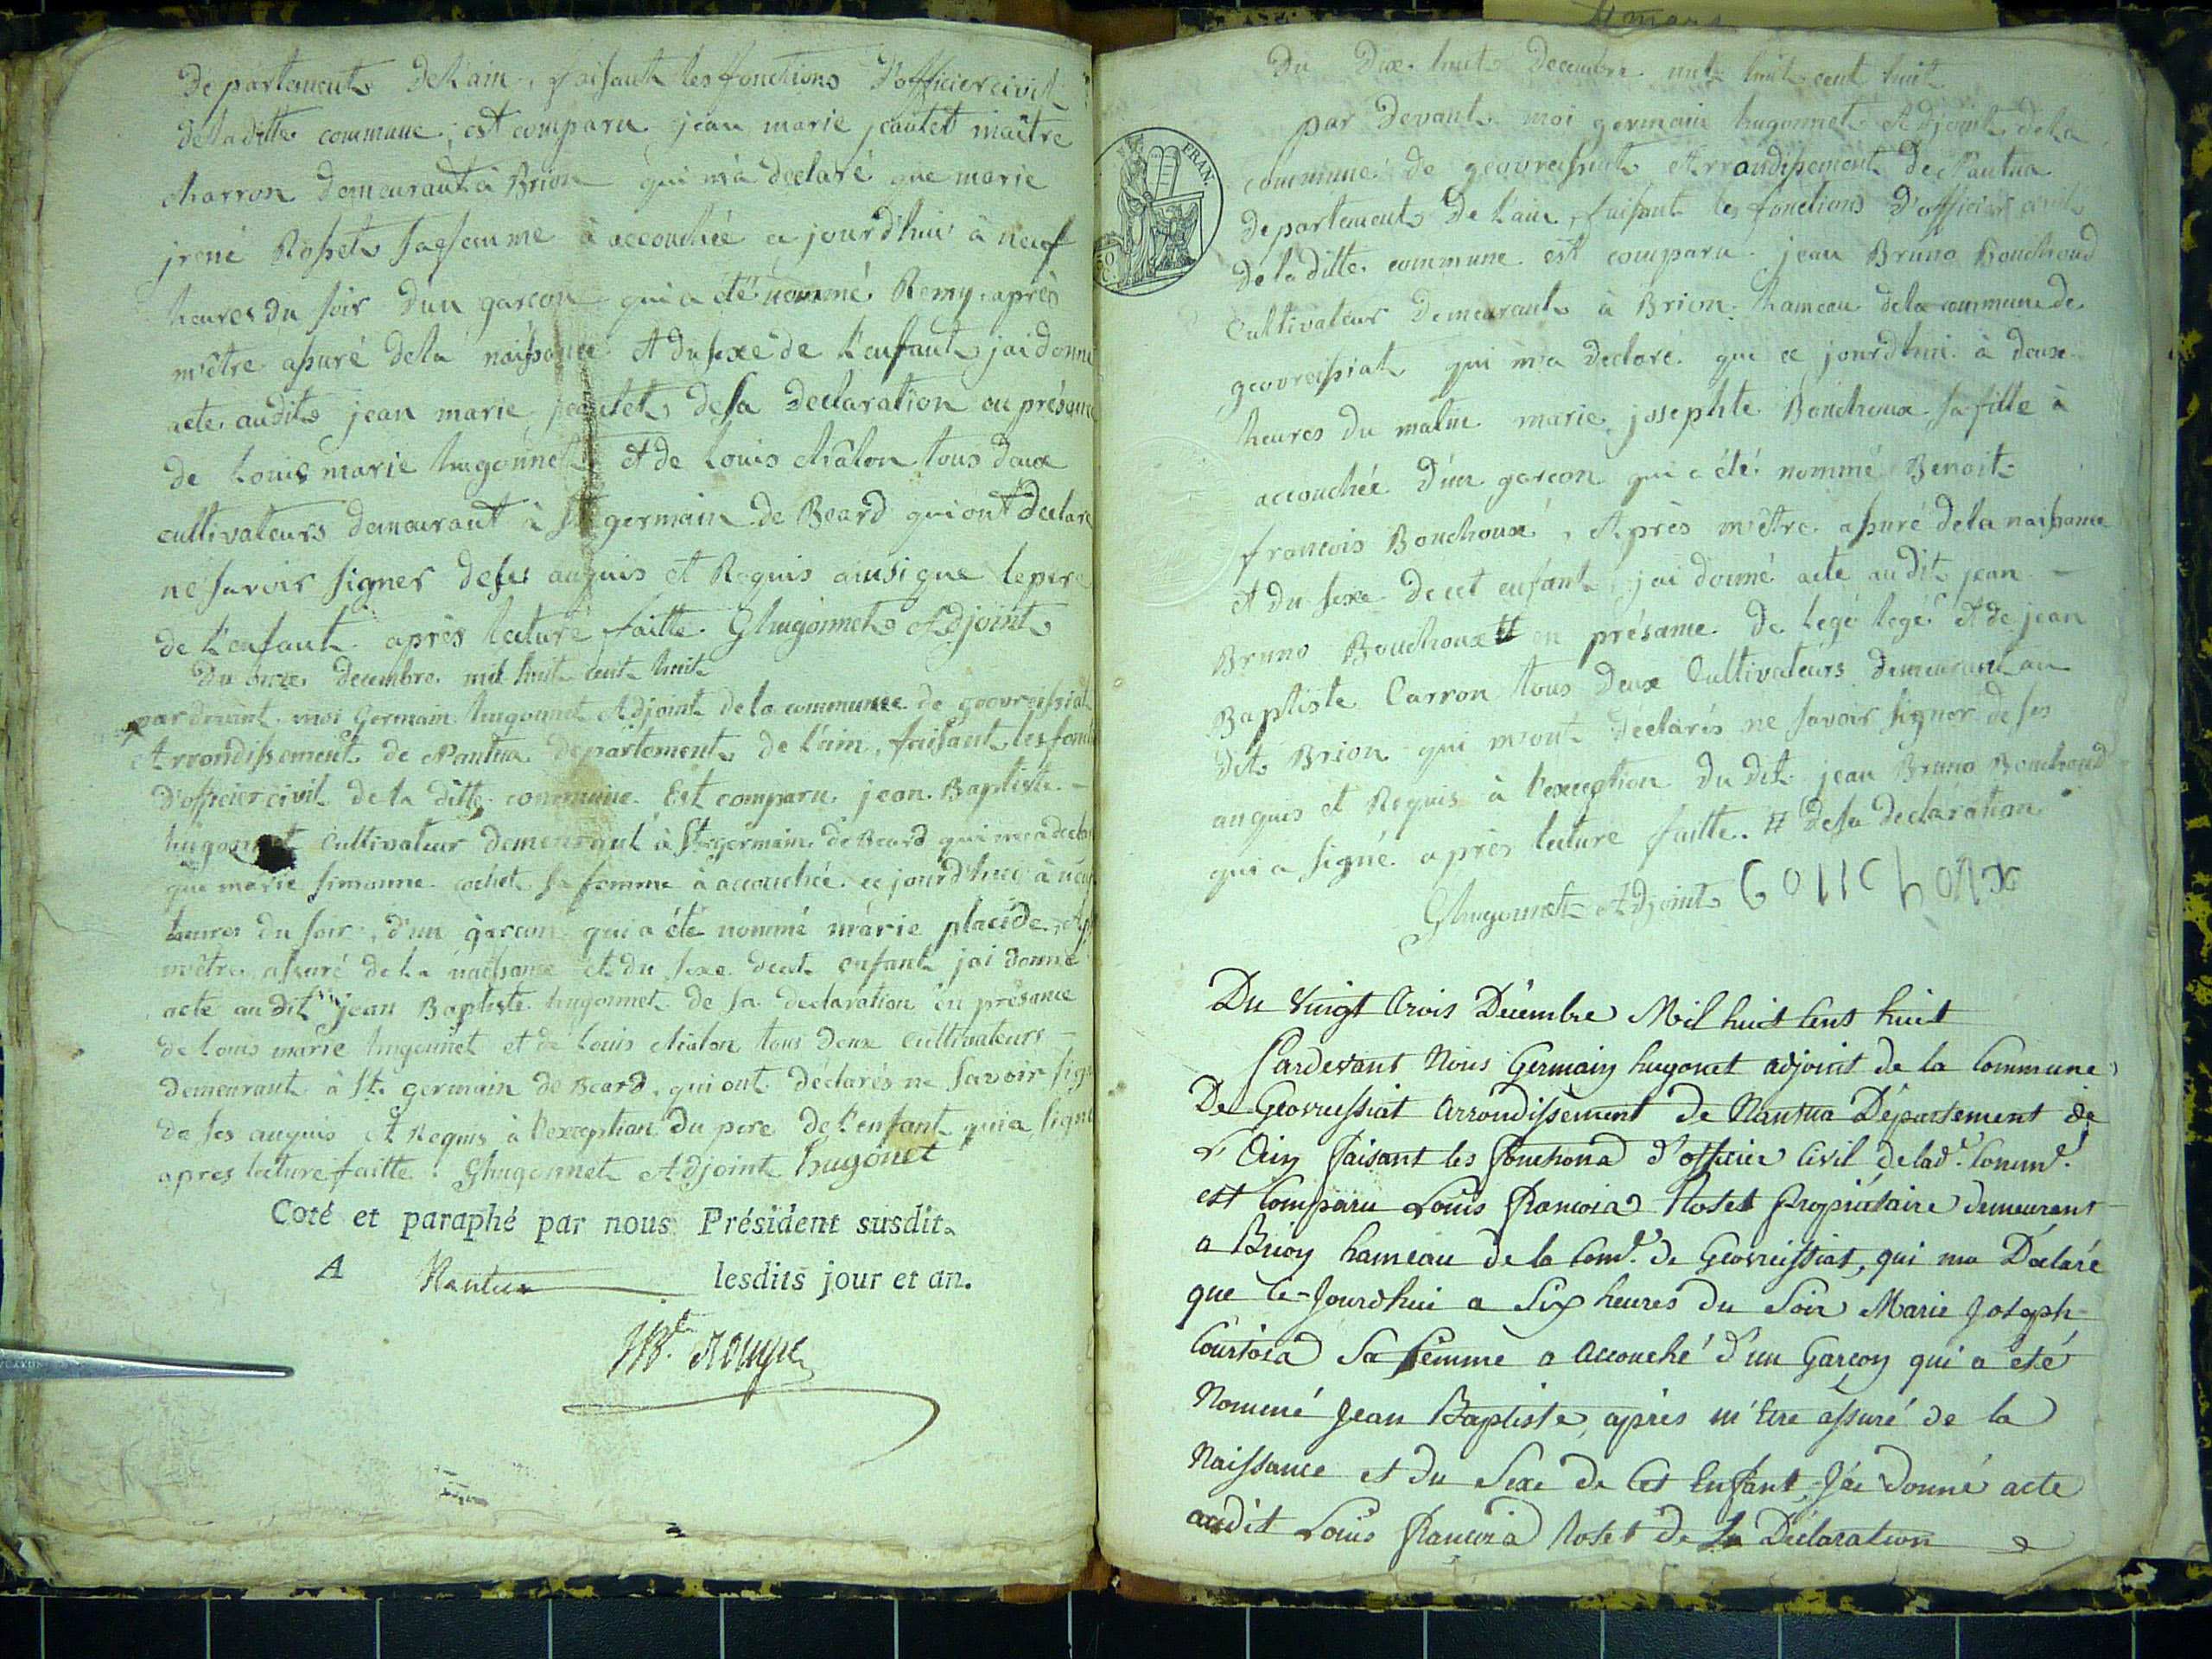 Departement De l'ain, faisant les fonctions D'officier civil
De la ditte commune, est comparu jean marie jeantet maitre
charron Demeurant à Brion qui m'a declaré que marie
jrené Rosset sa femme à accouchée ce jourd'hui à neuf
heures du soir d'un garcon qui a été nommé Remy, après
m'être assuré de la naissance Et du sexe de l'enfant jai donné
acte audit jean marie jeantet de sa Declaration en présance
de Louis marie hugonnet Et de Louis Châlon tous deux
cultivateurs demeurant à St germain de Beard qui ont Declaré
ne savoir signer de ses anquis et Requis ainsi que le pere
de l'enfant après lecture faitte. Ghugonnet Adjoint
Du onze Decembre mil huit cent huit
par devant moi Germain hugonnet Adjoint de la commune de geovressiat
Arrondissement de Nantua Departement de l'ain, faisant les
D'officier civil de la ditte commune Est comparu jean Baptiste
hugonnet Cultivateur Demeurant à St germain de Beard qui m'a
que marie simonne cochet sa femme à accouchée ce jourd'hui à
heures du soir, d'un garcon qui a été nommé marie placide,
m'être assuré de la naissance et du sexe de cet enfant jai donné
acte au dit jean Baptiste hugonnet de sa declaration en présance
de Louis marie hugonnet et de Louis châlon tous deux cultivateurs
demeurant à St germain de Beard, qui ont déclarés ne savoir
de ses anquis Et Requis à l'exception du pere de l'enfant qui a signé
apres lecture faitte. Ghugonnet Adjoint hugonet
Coté et paraphé par nous Président susdit.
A Nantua lesdits jour et an.
4 mars
Du Dix huit Decembre mil huit cent huit
par Devant moi germain hugonnet Adjoint de la
commune de geovressiat Arrondissement De Nantua
FRAN.
Departement De l'ain, faisant les fonctions D'officier civil
De la ditte commune est comparu jean Bruno Bouchoud
Cultivateur Demeurant à Brion hameau de la commune de
geovressiat qui m'a Declaré que ce jourd'hui à deux
heures du matin marie josephte Bouchoux sa fille à
accouchée D'un garcon qui a été nommé Benoit
francois Bouchoux, Après m'être assuré de la naissance
et du sexe de cet enfant, jai donné acte au dit jean
Bruno Bouchoux # en présance De Legé legé Et de jean
Baptiste Carron tous Deux Cultivateurs Demeurant au
dit Brion qui m'ont déclarés ne savoir signer de ses
anquis et Requis à l'exception Du dit jean Bruno Bouchoud
qui a signé après lecture faitte. # De sa declaration
Ghugonnet Adjoint bouchoux
Du Vingt trois Décembre Mil huit Cent huit
Pardevant Nous Germain hugonet adjoint de la Commune
De Geovressiat Arrondissement de Nantua Département de
L'Ain faisant les fonctions d'officier Civil de lad.e Comm.e
est Comparu Louis francois Roset Propriétaire demeurant
a Brion hameau de la Com.e de Geovressiat, qui ma Déclaré
que Ce-Jourdhui a Six heures du Soir Marie Joseph
Courtois Sa femme a accouché d'un Garçon qui a été
Nommé Jean Baptiste, après m'Etre assuré de la
Naissance et du Sexe de Cet Enfant, J'ai donné acte
audit Louis francois Roset de Sa Déclaration